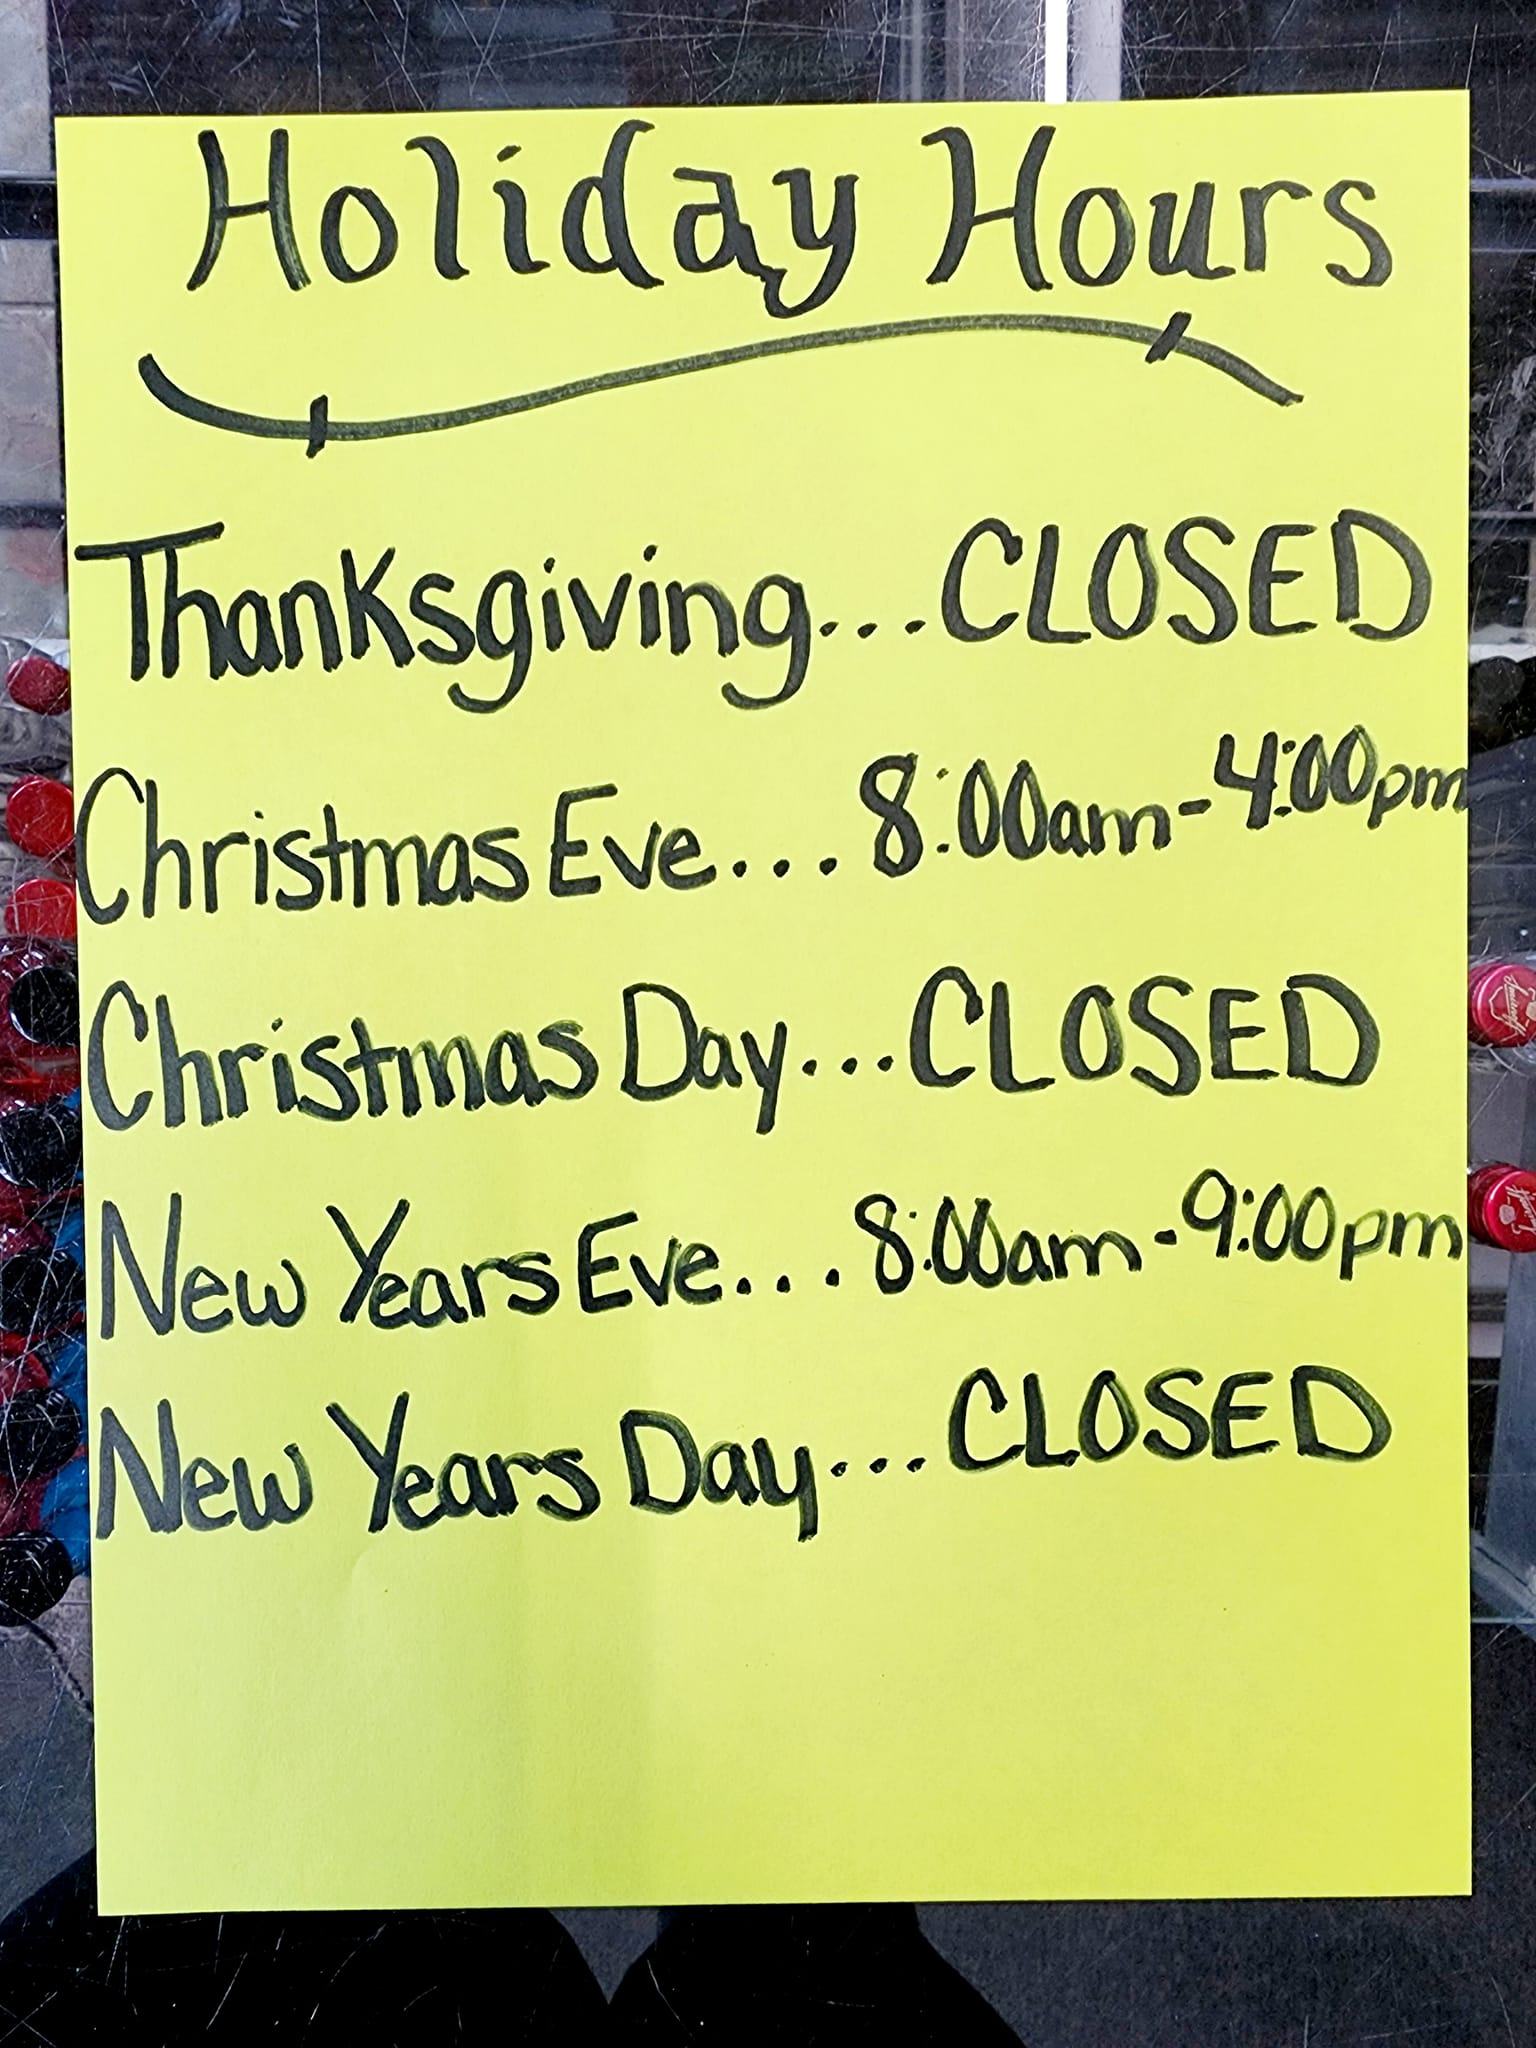 Holiday Hours
Thanksgiving...CLOSED
Christmas Eve...8:00am-4:00pm
Christmas Day...CLOSED
New Years Eve...8:00am-9:00pm
New Years Day...CLOSED